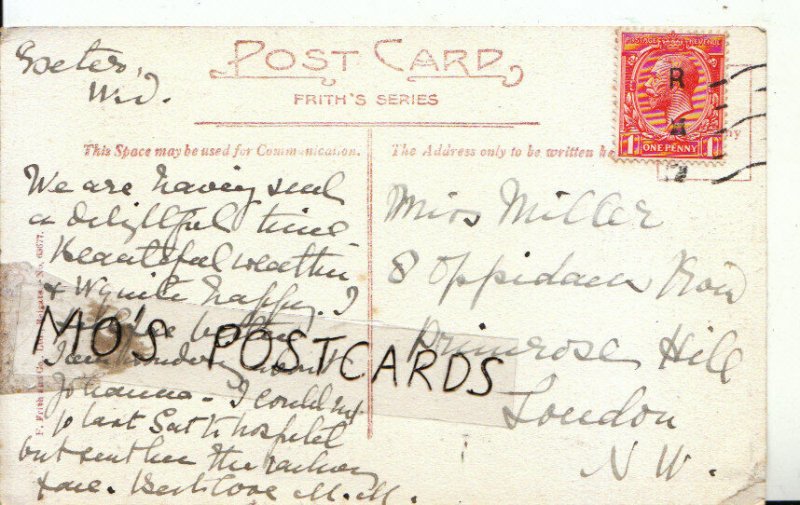 Exeter,
Wed.
POST CARD
FRITH'S SERIES
This Space may be used for Communication.
The Address only to be written he
POSTAGE REVENUE
R
ONE PENNY
We are having such
a delightful time
beautiful weather
& quite happy. I
MO'S POSTCARDS
I am wondering about
Johanna - I could not
go last Sat to hospital
but sent her the railway
fare. Best love M.M.
Miss Miller
8 Oppidans Road
Primrose Hill
London
N.W.